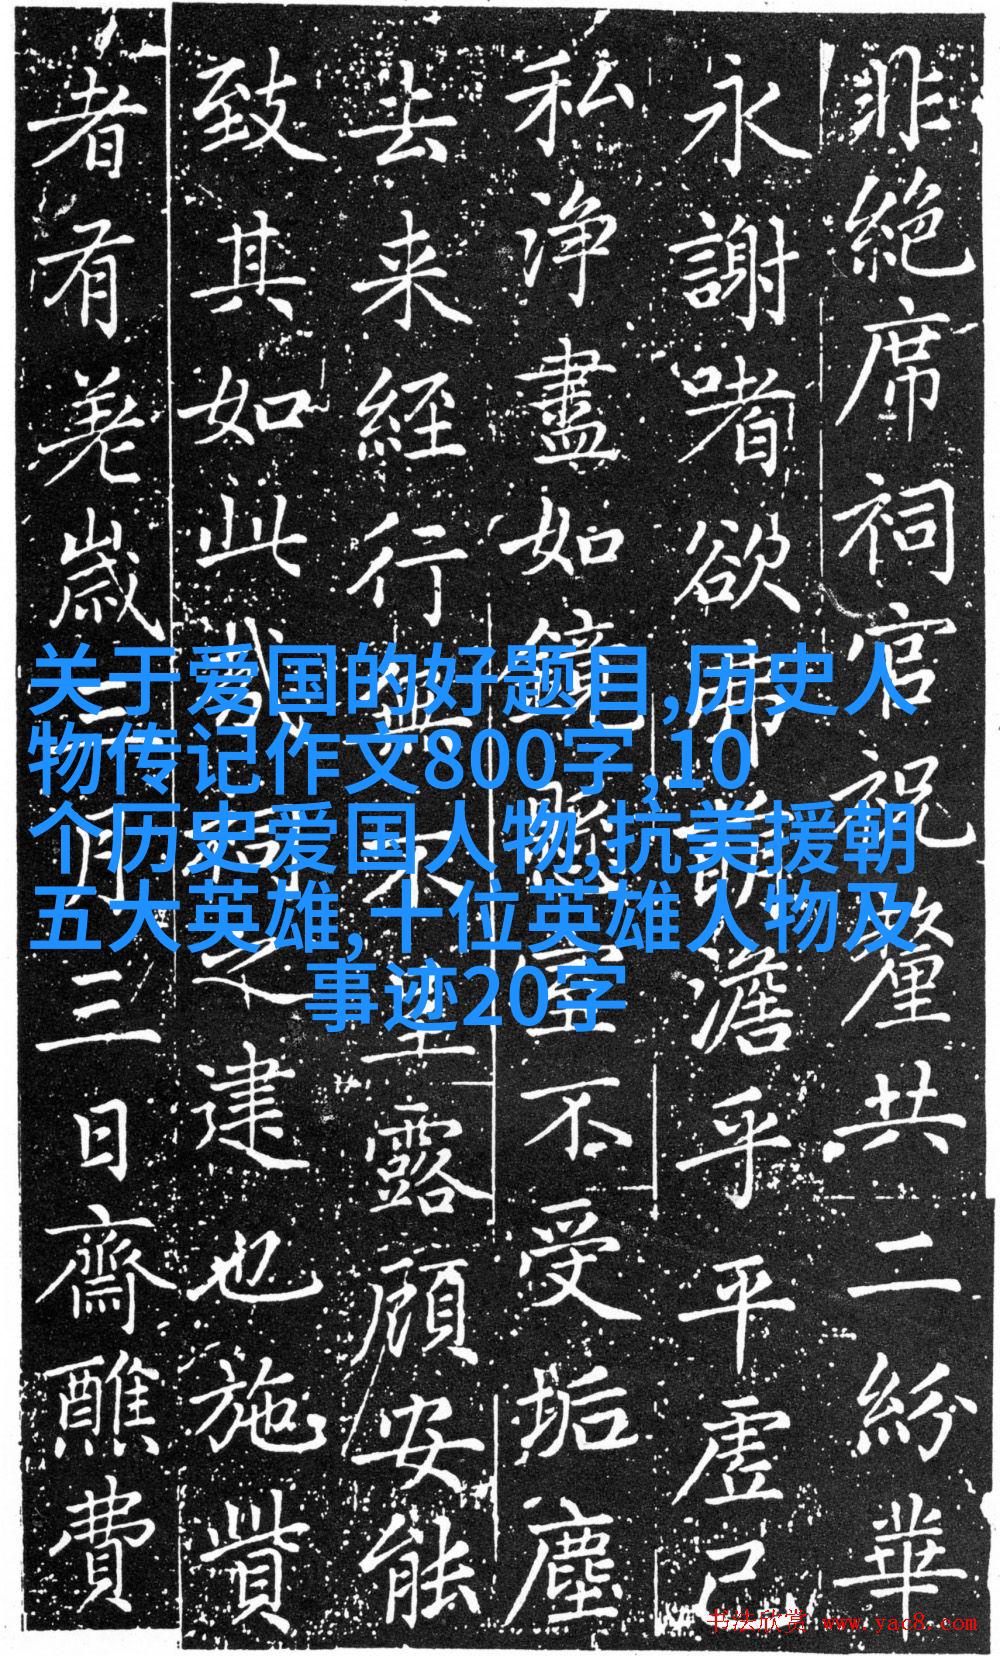 非絶席祠官祝釐共二紛華
永謝嗜欲弗萌澹乎平虛己
私浄盡如鏡不受垢塵
去来經行無露顧安能
致其如此之建也施貲
者有差歲三月三日齋醮費
关于爱国的好题目,历史人
物传记作文800字,10
个历史爱国人物,抗美援朝
五大英雄,十位英雄人物及
事迹20字
书法欣赏 www.yac8.com